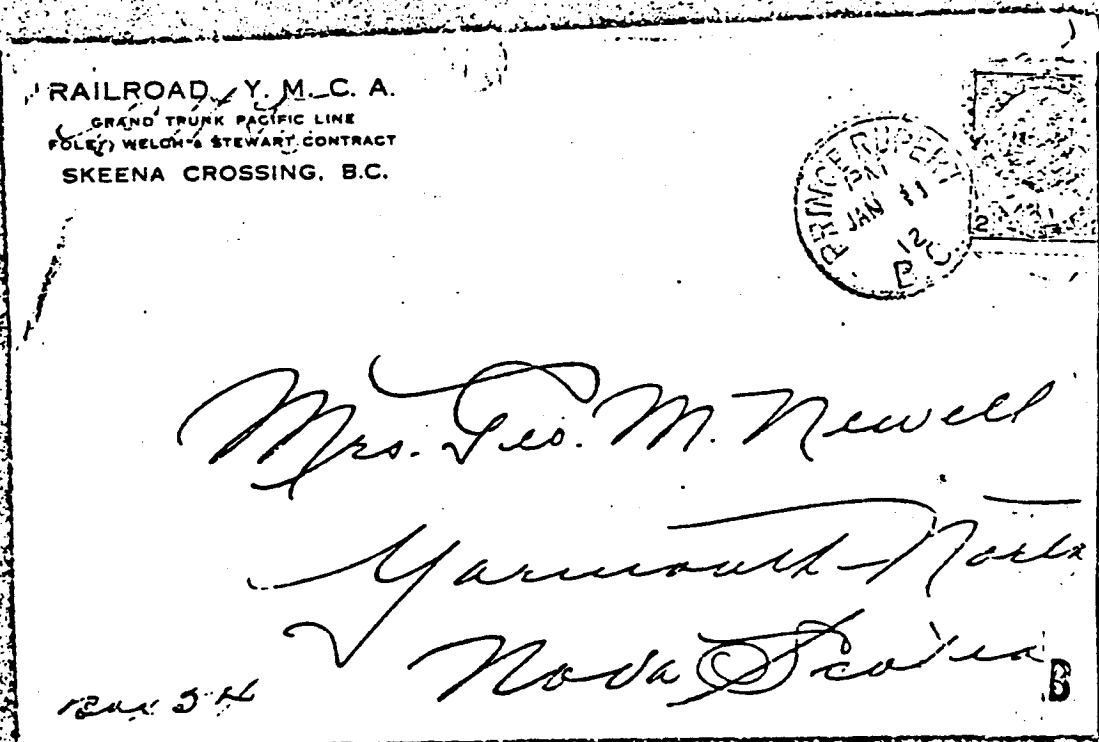 RAILROAD Y. M. C. A.
GRAND TRUNK PACIFIC LINE
FOLEY, WELCH & STEWART CONTRACT
SKEENA CROSSING, B.C.
PRINCE RUPERT
PM
JAN 11
12
B.C.
2
Mrs. Geo. M. Newell
Yarmouth North
Nova Scotia
Box 24
B